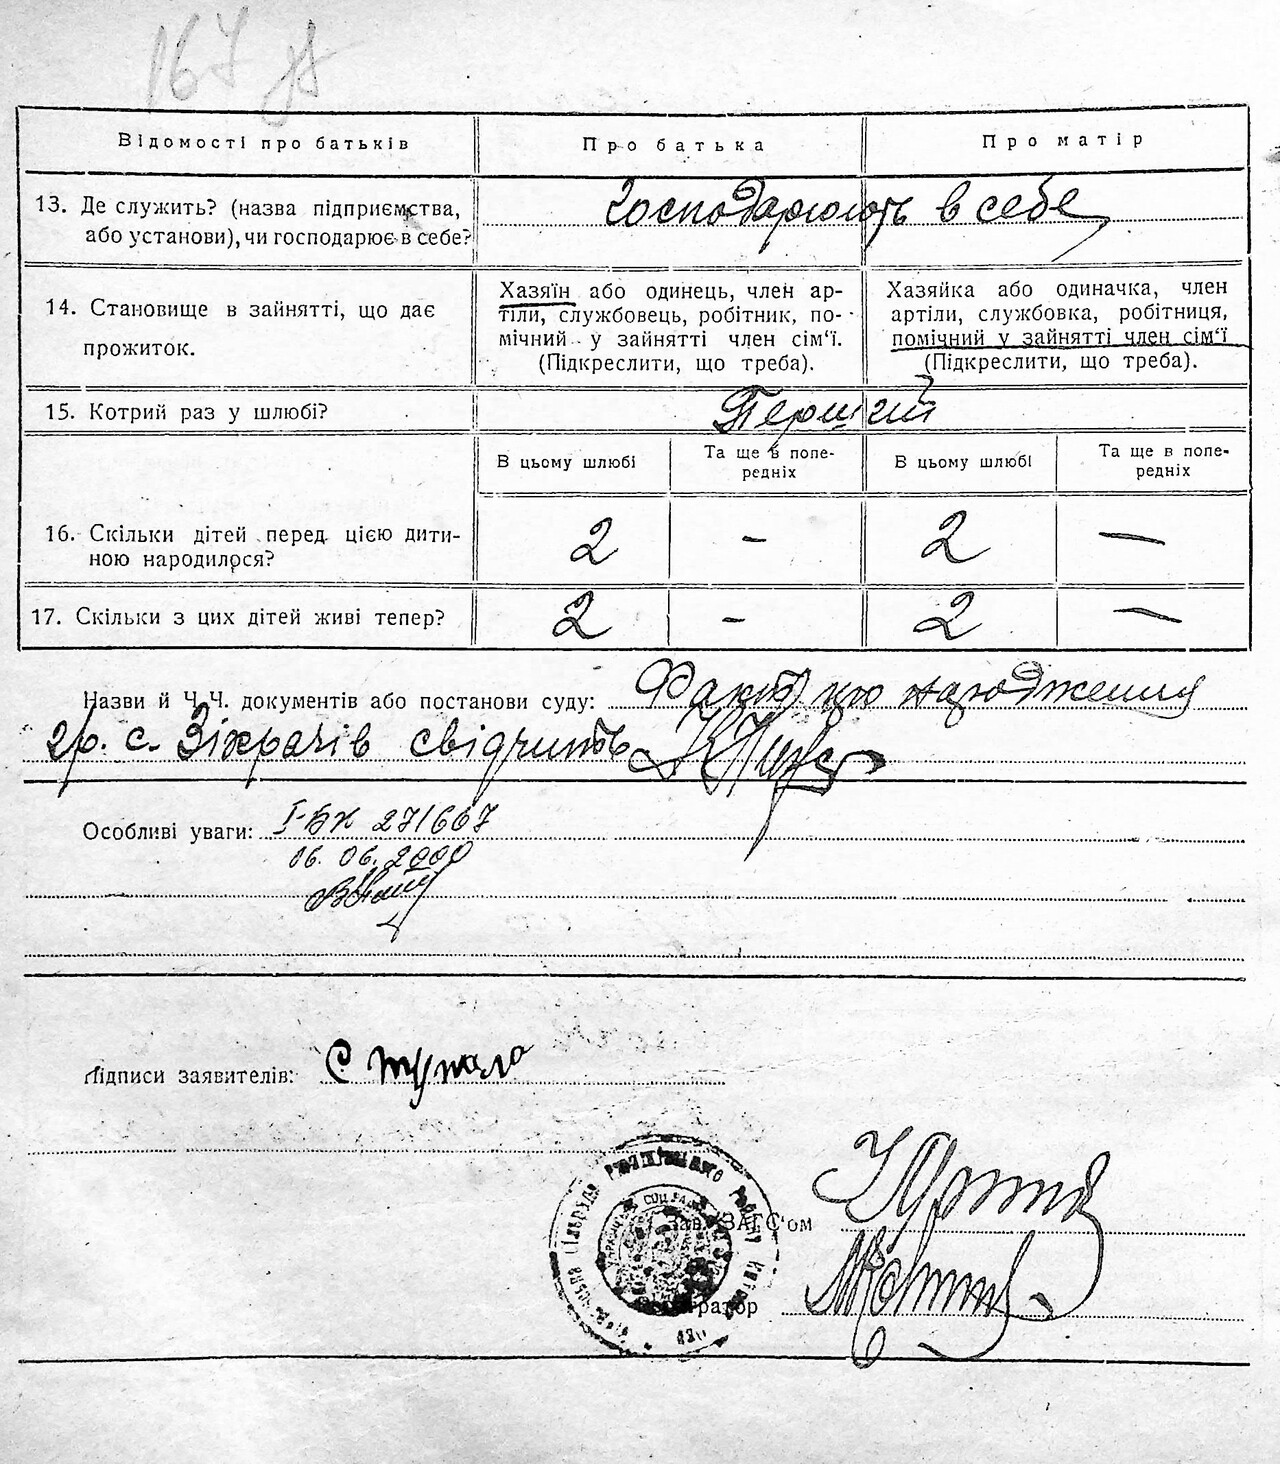 167
Відомості про батьків
Про батька
Про матір
13. Де служить? (назва підприємства,
або установи), чи господарює в себе?
Господарюють в себе
14. Становище в зайнятті, що дає
прожиток.
Хазяїн або одинець, член ар-
тіли, службовець, робітник, по-
мічний у зайнятті член сім'ї.
(Підкреслити, що треба).
Хазяйка або одиначка, член
артіли, службовка, робітниця,
помічний у зайнятті член сім'ї
(Підкреслити, що треба).
15. Котрий раз у шлюбі?
Перший
В цьому шлюбі
Та ще в попе-
редніх
В цьому шлюбі
Та ще в попе-
редніх
16. Скільки дітей перед цією дити-
ною народилося?
2 - 2 —
17. Скільки з цих дітей живі тепер?
2 - 2 —
Назви й Ч.Ч. документів або постанови суду: Факт народження
гр. с. Зікрачів свідчить
Особливі уваги: І-БК 271667
16. 06. 2000
Підписи заявителів: С тупало
Зав. ЗАГС'ом